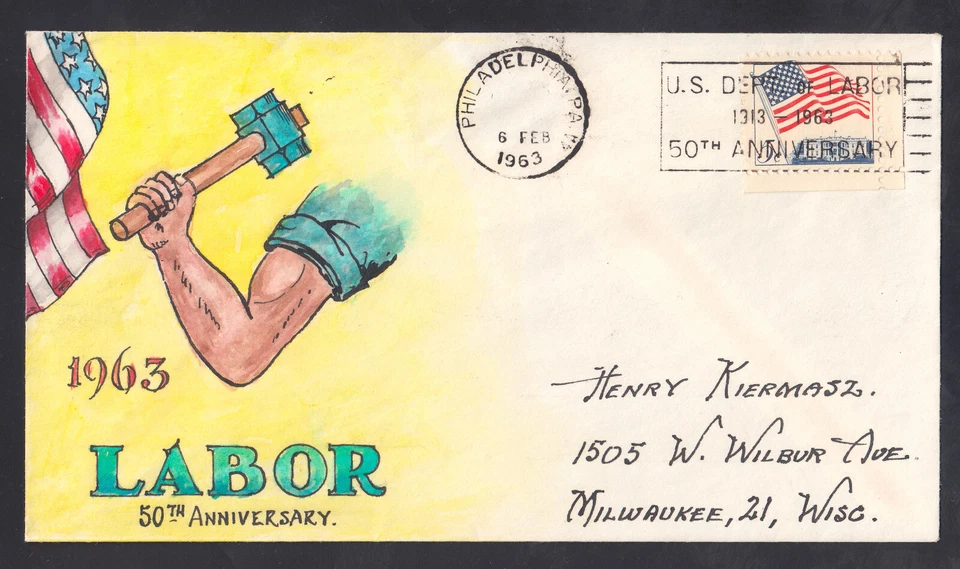 PHILADELPHIA, PA.
6 FEB
1963
U.S. DEPT. OF LABOR
1913 - 1963
50TH ANNIVERSARY
5¢
1963
LABOR
50TH ANNIVERSARY.
HENRY KIERMASZ.
1505 W. WILBUR AVE.
MILWAUKEE, 21, WISC.